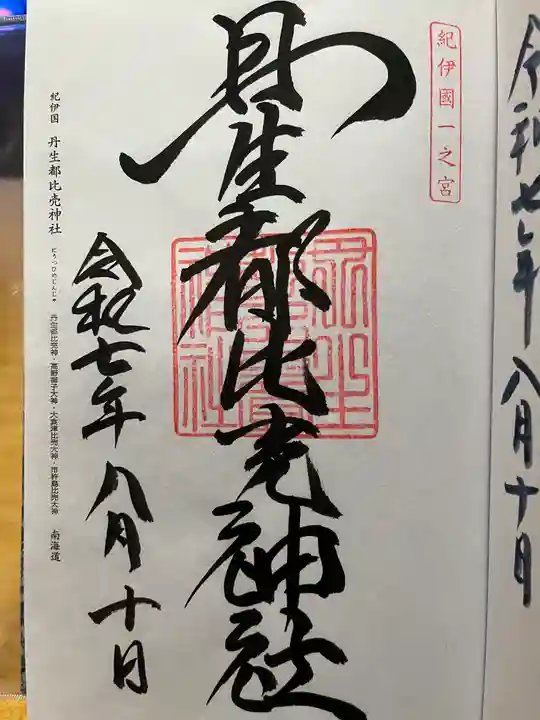 令和七年八月十日
紀伊國一之宮
丹生都比売神社
令和七年八月十日
紀伊国 丹生都比売神社 にうつひめじんじゃ 丹生都比売大神・高野御子大神・大食津比売大神・市杵島比売大神 南海道